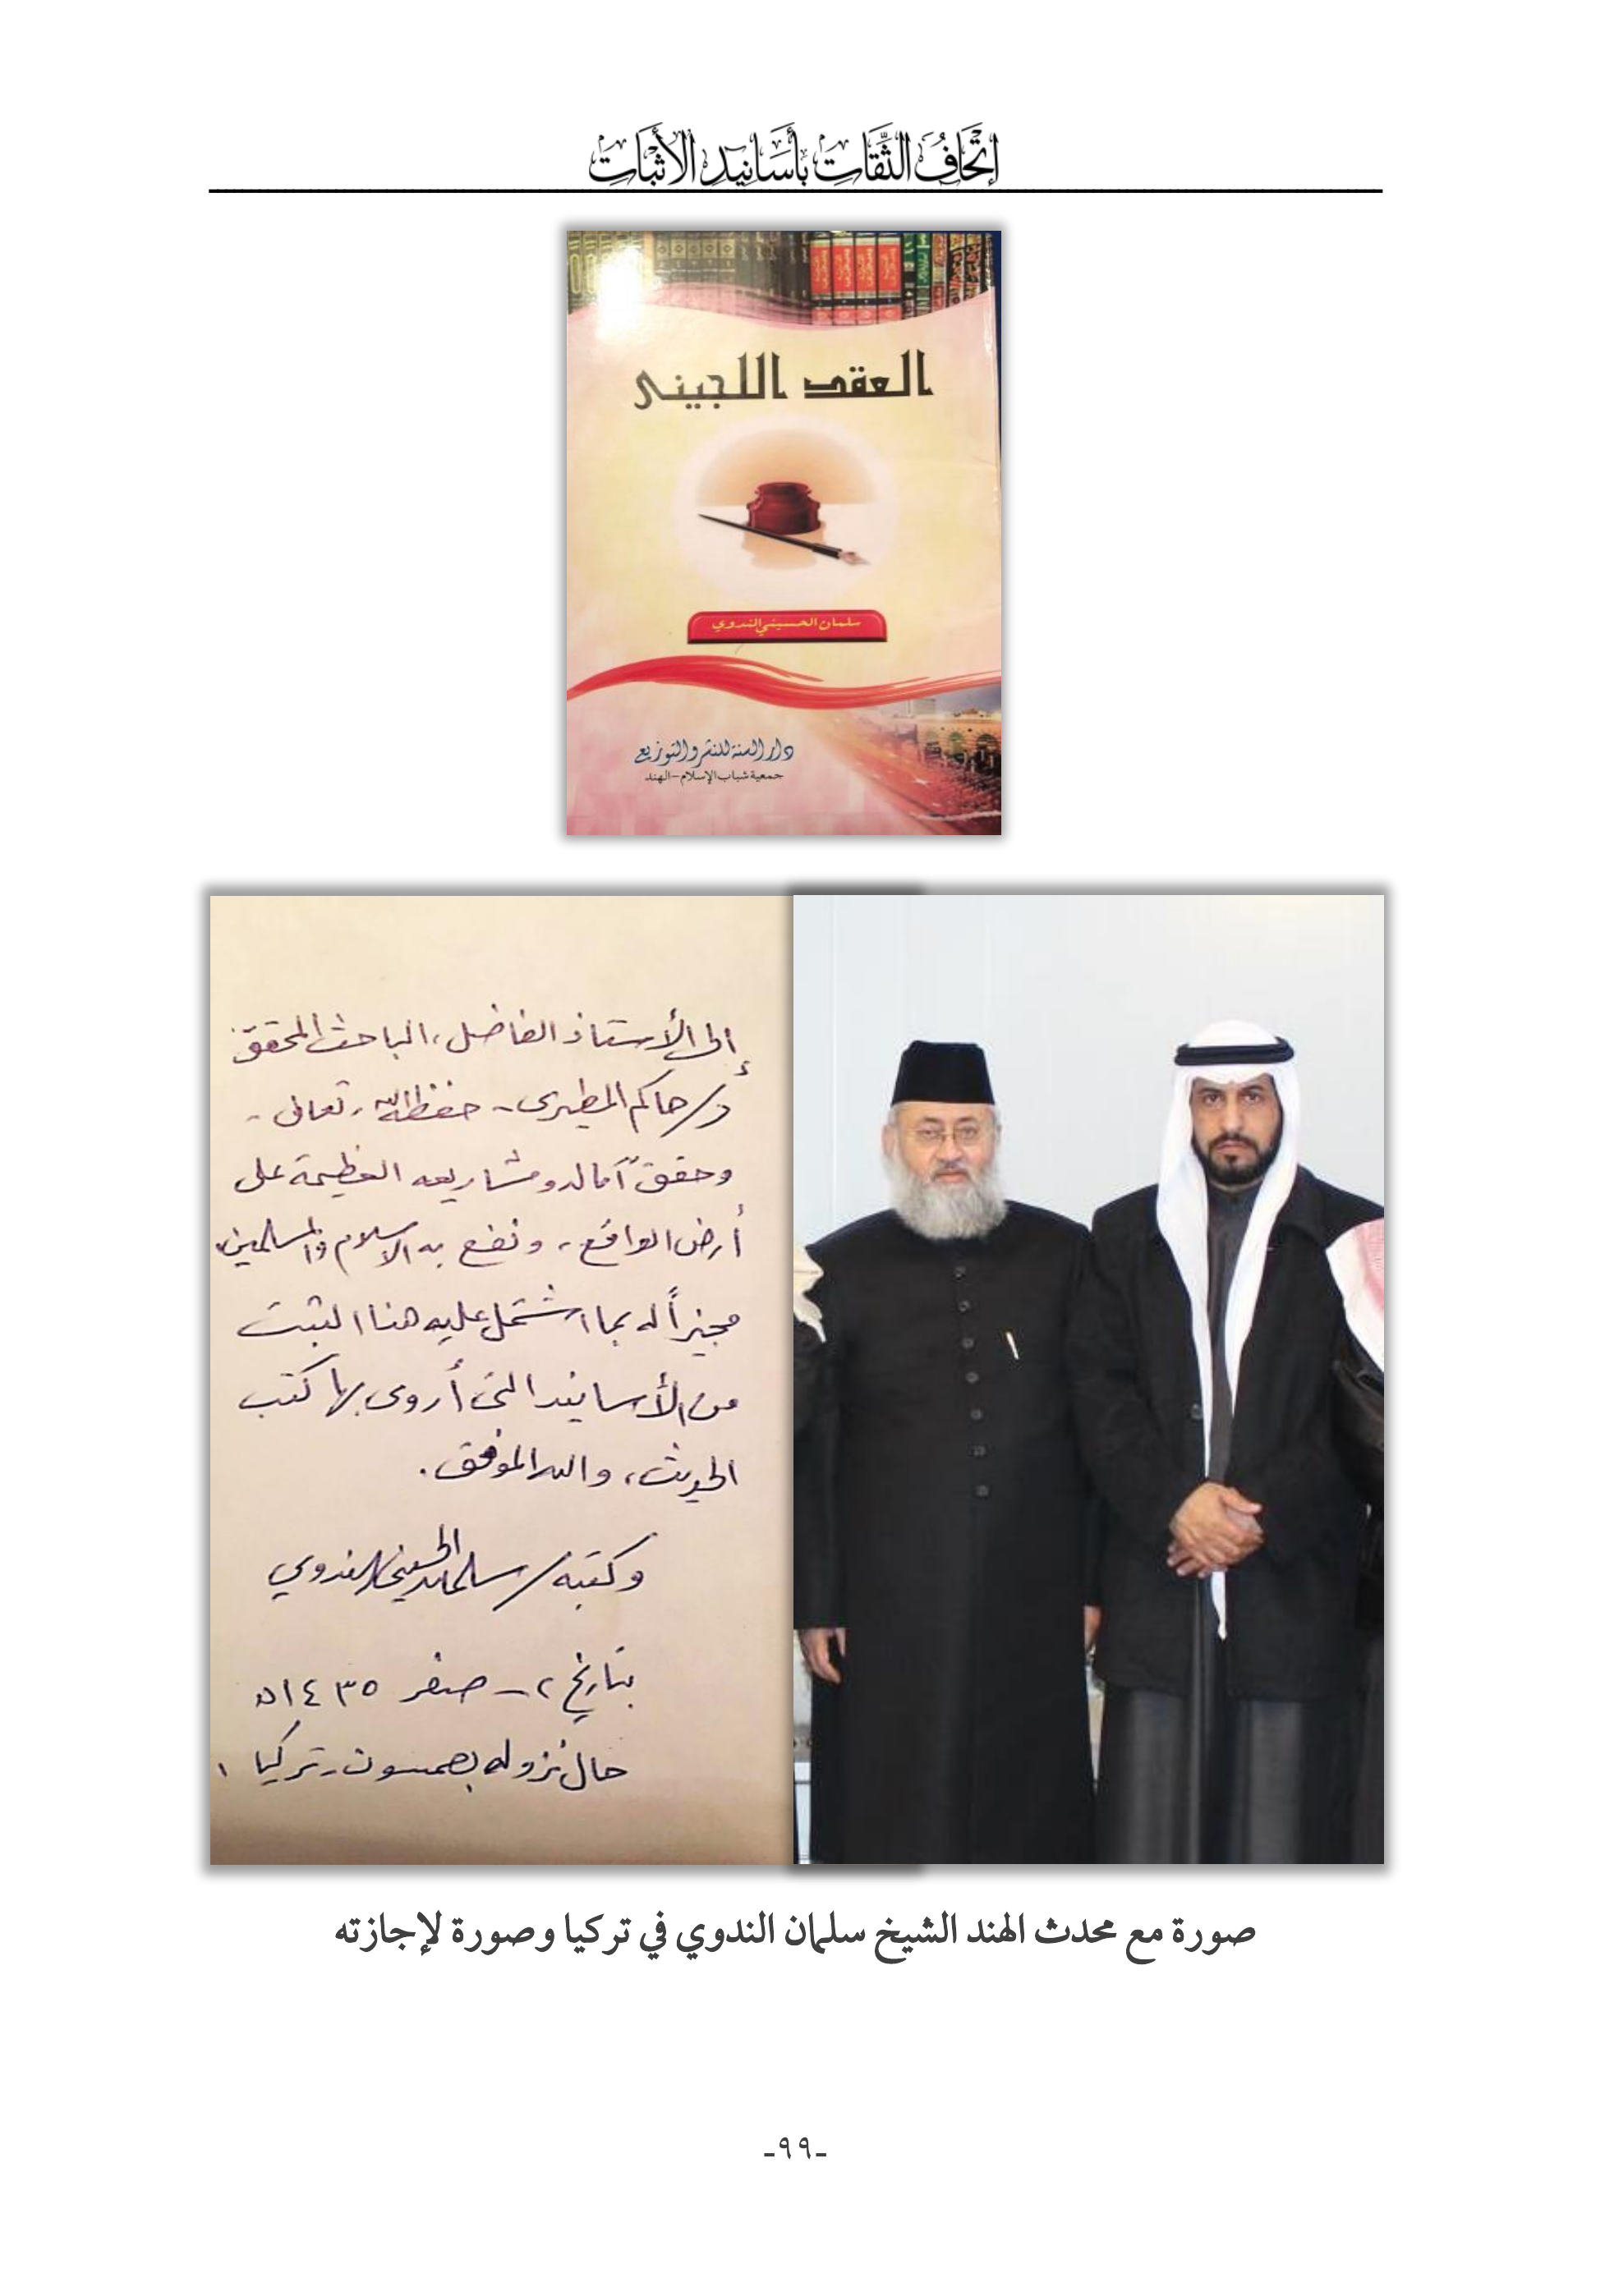 إتحاف الثقات بأسانيد الأثبات
العقد اللجيني
سلمان الحسيني الندوي
دار السنة للنشر والتوزيع
جمعية شباب الإسلام - الهند
إلى الأستاذ الفاضل، الباحث المحقق
د/ حاكم المطيري - حفظه الله تعالى -
وحقق آماله ومشاريعه العظيمة على
أرض الواقع، ونفع به الإسلام والمسلمين،
مجيزاً له بما اشتمل عليه هذا الثبت
من الأسانيد التي أروى بها كتب
الحديث، والله الموفق.
وكتبه / سلمان الحسيني الندوي
بتاريخ ٢ - صفر ١٤٣٥ه
حال نزوله بصمسون - تركيا
صورة مع محدث الهند الشيخ سلمان الندوي في تركيا وصورة لإجازته
-٩٩-